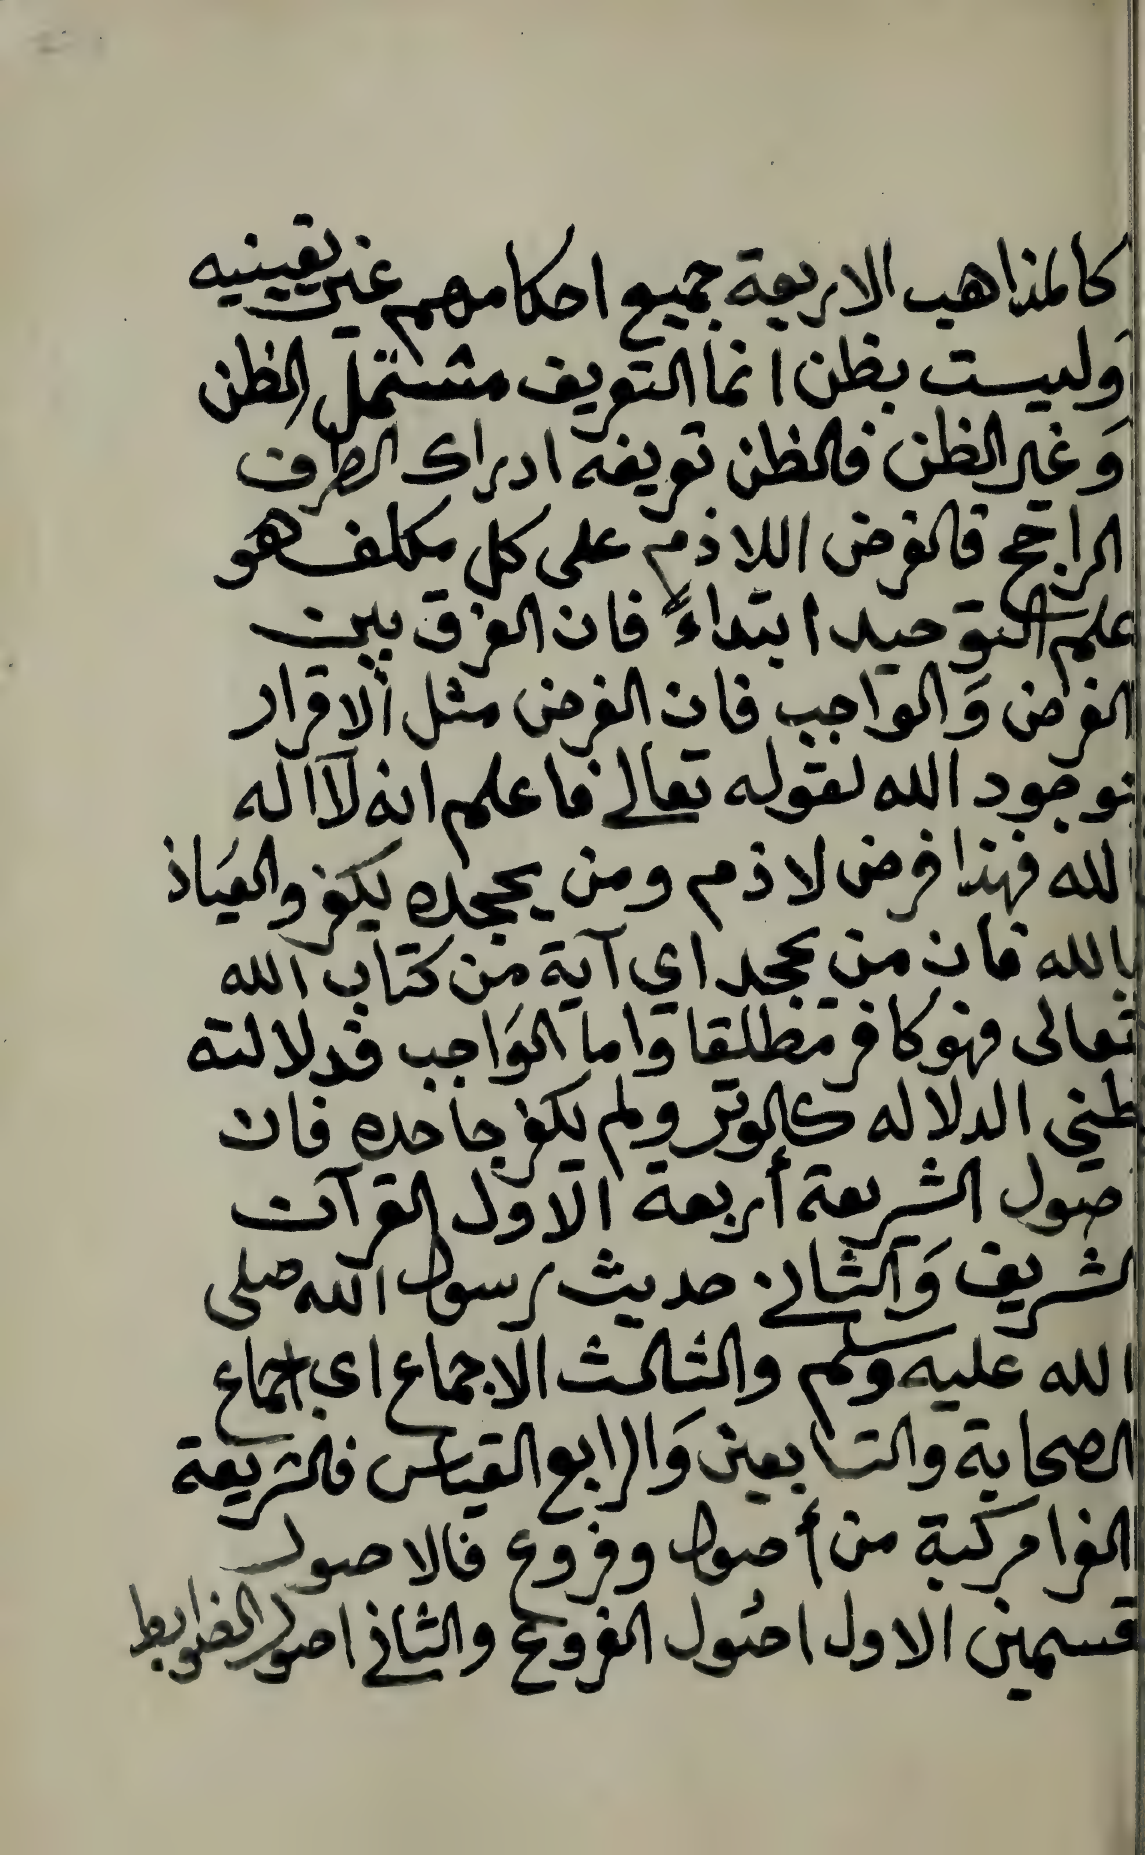 كالمذاهب الاربعة جميع احكامهم غير يقينيه
وليست بظن انما التعريف مشتمل الظن
وَغير الظن فالظن تعريفه ادراك الطرف
الراجح فالفرض اللاذم على كل مكلف هو
علم التوحيد ابتداءً فان الفرق بين
الفرض وَالواجب فان الفرض مثل ألاقرار
بوجود الله لقوله تعالى فاعلم انه لآ اله
الله فهذا فرض لاذم ومن يجحده يكفر والعيَاذ
بالله فان من يجحد اي آية من كتاب الله
تعالى فهو كافر مطلقا واما الوَاجب فدلالته
ظني الدلاله كالوتر ولم يكفر جاحده فان
صول الشريعة أربعة الاول القرآن
الشريف وَالثاني حديث رسول الله صلى
الله عليه وسلم والثالث الاجماع اي اجماع
الصحابة والتابعين وَالرابع القياس فالشريعة
الغرا مركبة من أصول وفروع فالاصول
قسمين الاول اصُول الفروع والثاني اصول الضوابط